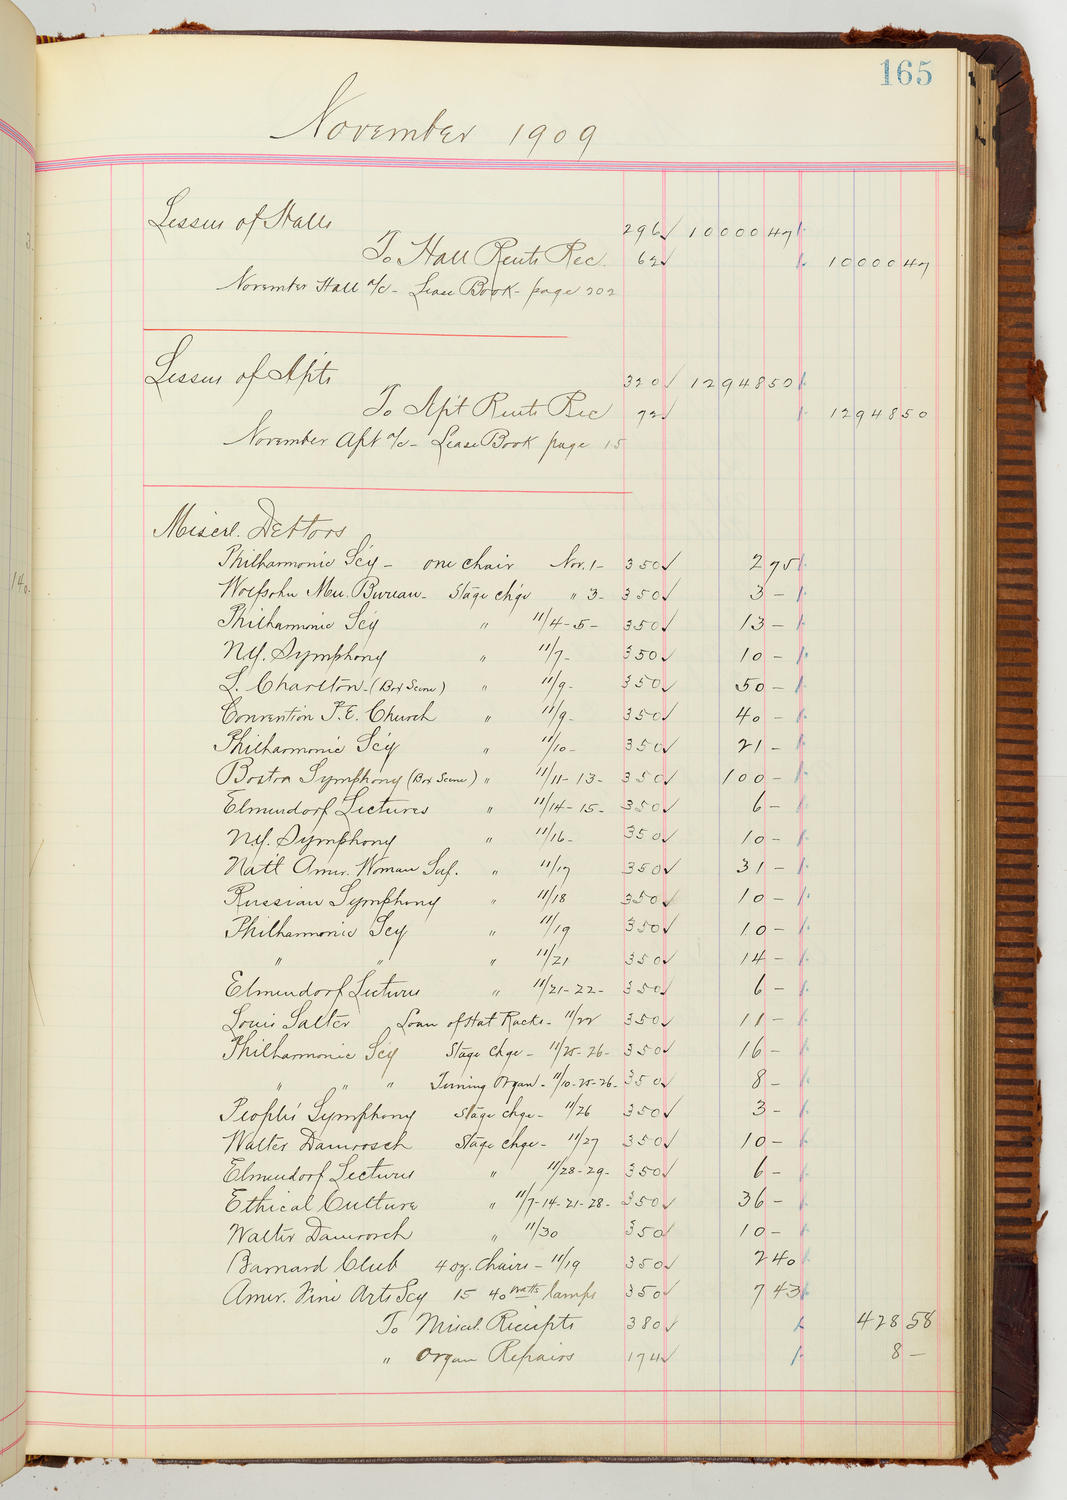 165
November 1909
Lessees of Halls 296 ✓ 10000 47
To Hall Rents Rec. 62 ✓ 10000 47
November Hall a/c - Lease Book - page 202
Lessees of Apts 320 ✓ 12948 50
To Apt Rents Rec 72 ✓ 12948 50
November Apt a/c - Lease Book page 15
Miscel. Debtors
Philharmonic Scy - one chair Nov. 1 - 350 ✓ 2 75
Wolfsohn Mu. Bureau - Stage chge " 3 - 350 ✓ 3 -
Philharmonic Scy " 11/4-5 - 350 ✓ 13 -
N.Y. Symphony " 11/7 - 350 ✓ 10 -
L. Charlton - (Box Scene) " 11/9 - 350 ✓ 50 -
Convention P.E. Church " 11/9 - 350 ✓ 40 -
Philharmonic Scy " 11/10 - 350 ✓ 21 -
Boston Symphony (Box Scene) " 11/11-13 - 350 ✓ 100 -
Elmendorf Lectures " 11/14-15 - 350 ✓ 6 -
N.Y. Symphony " 11/16 - 350 ✓ 10 -
Nat'l Amer. Woman Suf. " 11/17 350 ✓ 31 -
Russian Symphony " 11/18 350 ✓ 10 -
Philharmonic Scy " 11/19 350 ✓ 10 -
" " " 11/21 350 ✓ 14 -
Elmendorf Lectures " 11/21-22 - 350 ✓ 6 -
Louis Salter Loan of Hat Racks - 11/22 350 ✓ 11 -
Philharmonic Scy Stage Chge - 11/25-26 - 350 ✓ 16 -
" " " Tuning Organ - 11/10-25-26 - 350 ✓ 8 -
People's Symphony Stage chge - 11/26 350 ✓ 3 -
Walter Damrosch Stage chge - 11/27 350 ✓ 10 -
Elmendorf Lectures " 11/28-29 - 350 ✓ 6 -
Ethical Culture " 11/7-14-21-28 - 350 ✓ 36 -
Walter Damrosch " 11/30 350 ✓ 10 -
Barnard Club 4 dz. chairs - 11/19 350 ✓ 2 40
Amer. Fine Arts Scy 15 40 watts lamps 350 ✓ 7 43
To Miscl. Receipts 380 ✓ 428 58
" Organ Repairs 174 ✓ 8 -